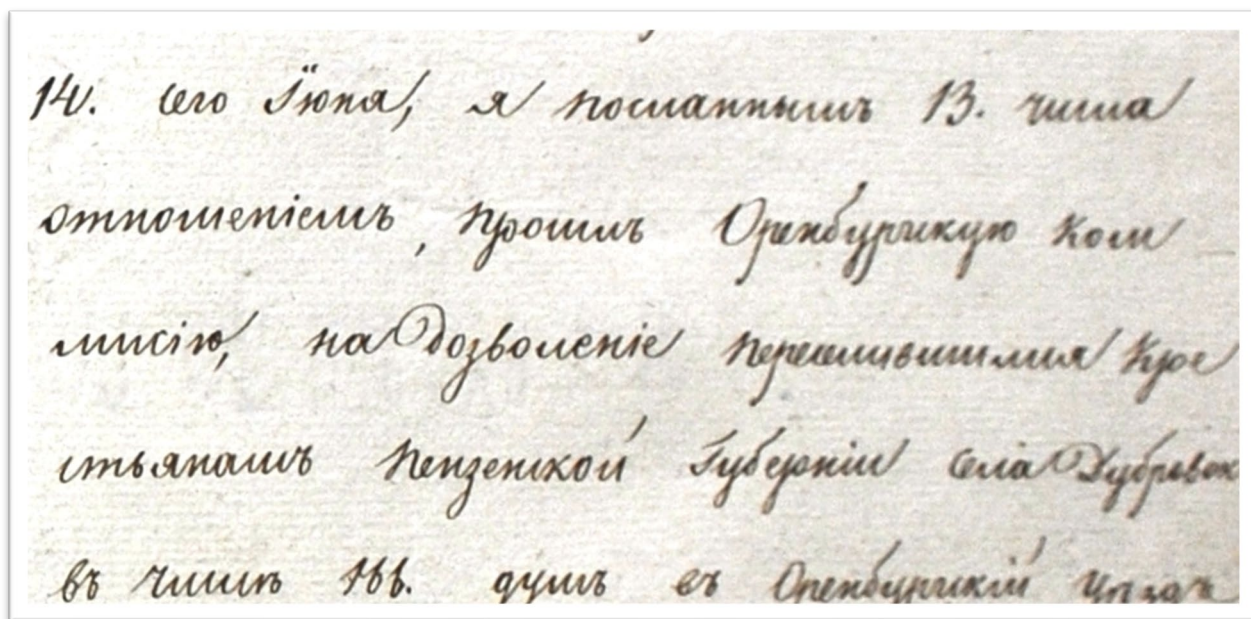 14. сего Іюня, я посланнымъ 13. числа
отношеніемъ, просилъ Оренбургскую Ком
мисію, на дозволеніе переселившимся Кре
стьянамъ Пензенской Губерніи села Дубровок
въ числѣ 166. душъ въ Оренбургскій уѣздъ